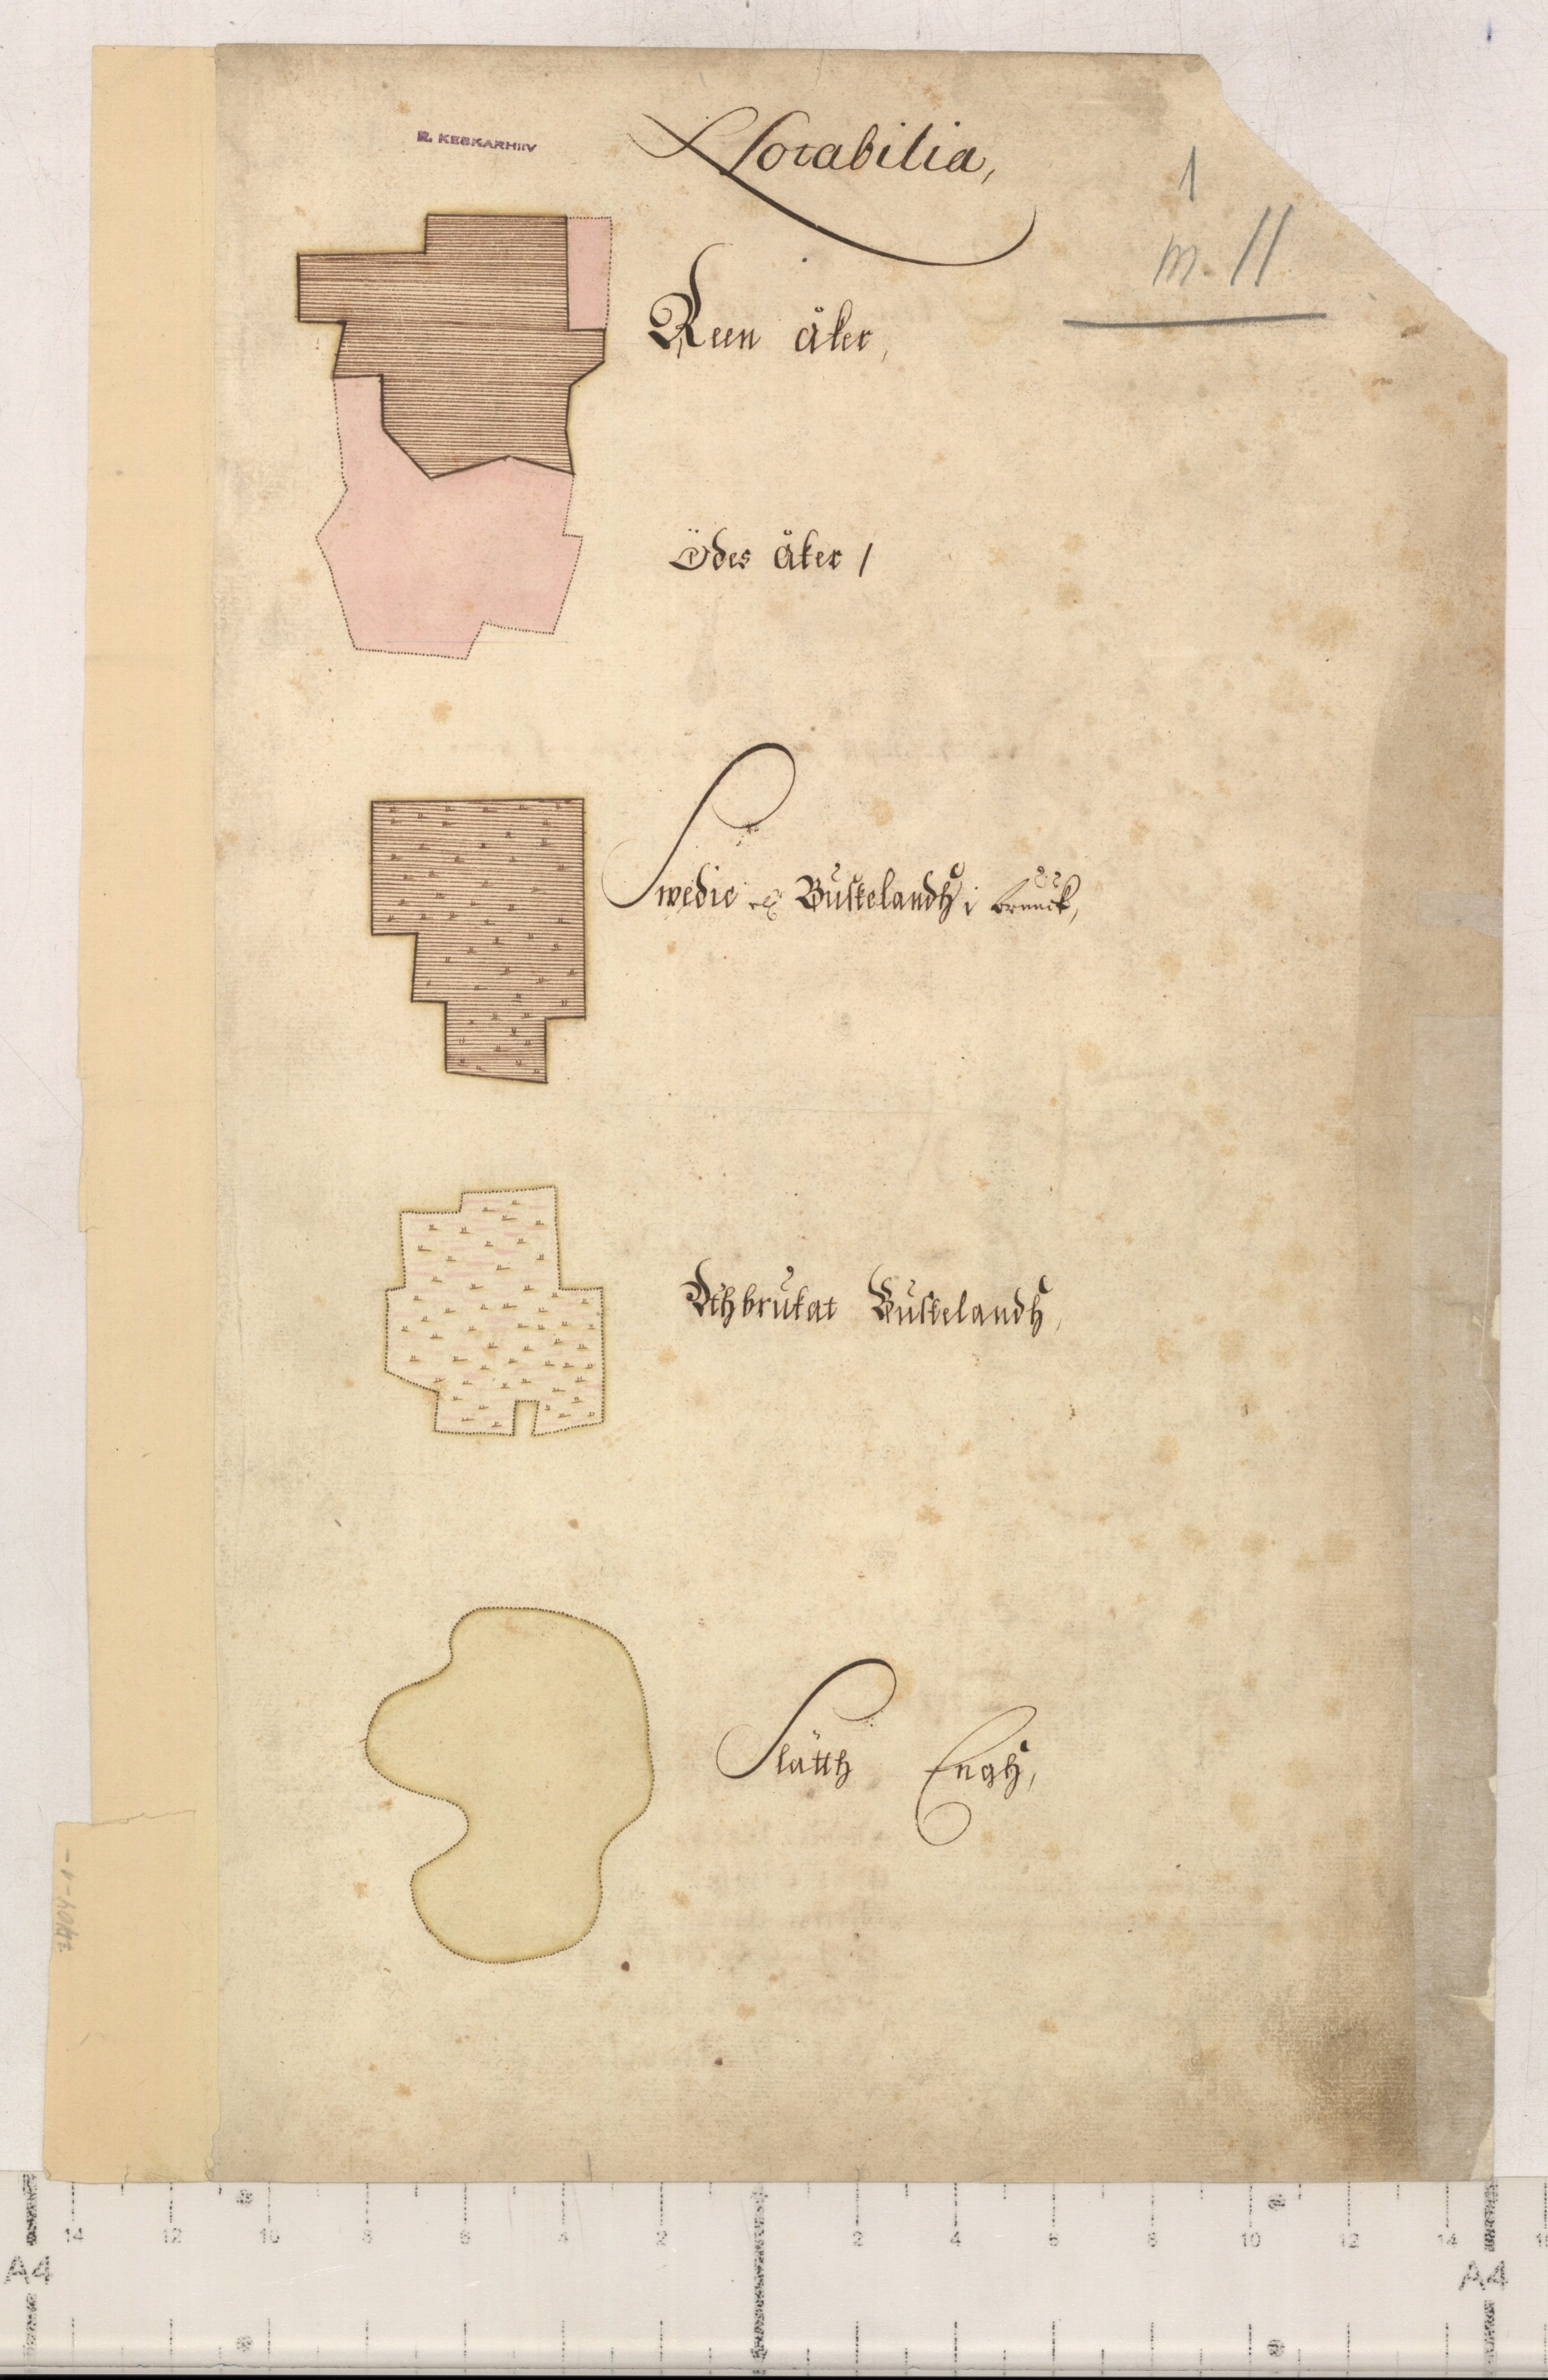 R. KESKARHIIV
Notabilia,
1
m. 11
Reen åker,
Ödes åker /
Swedie Buskelandh i bruuck,
Othbrukat Buskelandh,
Slätth Engh,
14 12 10 8 6 4 2 2 4 6 8 10 12 14
A4 A4